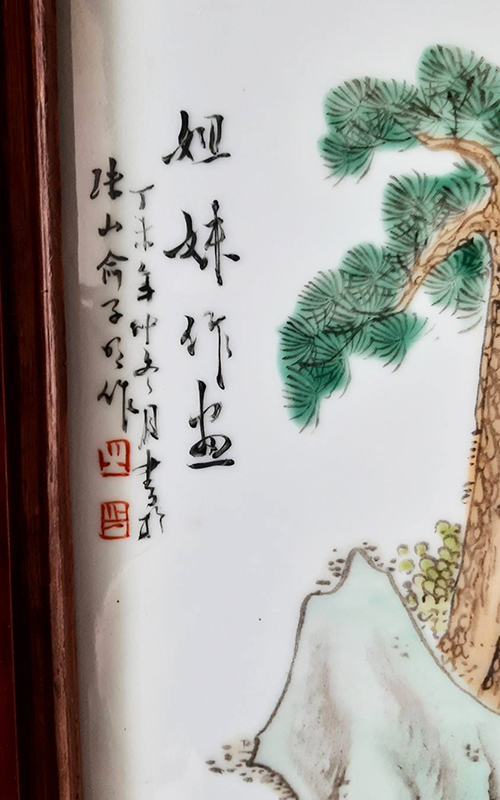 姐妹作画
丁未年仲冬月書於
珠山俞子明作